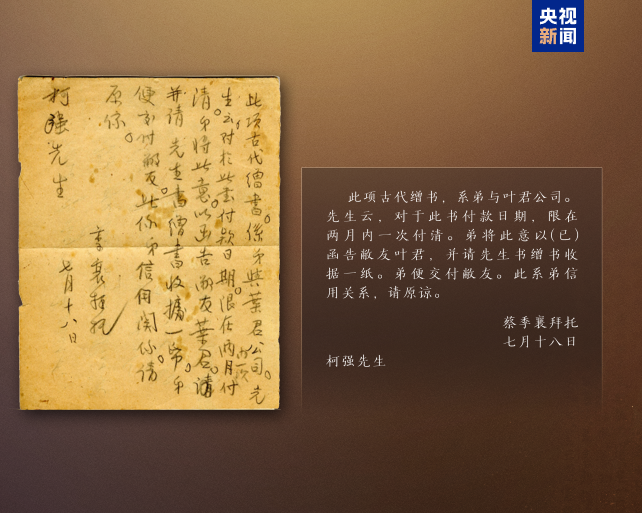 央视
新闻
此项古代缯书。系弟与葉君公司。先
生云对於此书付款日期。限在两月内一次付
清。弟将此意以函告敝友葉君。
并请 先生书缯书收據一帋。弟
便交付敝友。此係弟信用關係。请
原谅。
季襄拜托
七月十八日
柯强先生
此项古代缯书,系弟与叶君公司。
先生云,对于此书付款日期,限在
两月内一次付清。弟将此意以(已)
函告敝友叶君,并请先生书缯书收
据一纸。弟便交付敝友。此系弟信
用关系,请原谅。
蔡季襄拜托
七月十八日
柯强先生